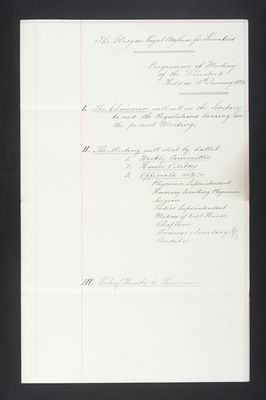 The Glasgow Royal Asylum for Lunatics
Programme of Meeting
of the Directors
Held on 15th January 1884
I. The Chairman will call on the Secretary
to read the Regulations bearing on
the present Meeting.
II. The Meeting will elect by Ballot
1. Weekly Committee
2. House Visitors
3. Officials, viz:-
Physician Superintendent
Honorary Consulting Physician
Surgeon
Ladies Superintendent
Matron of East House
Chaplain
Treasurer & Secretary &
Auditor.
III. Vote of Thanks to Chairman